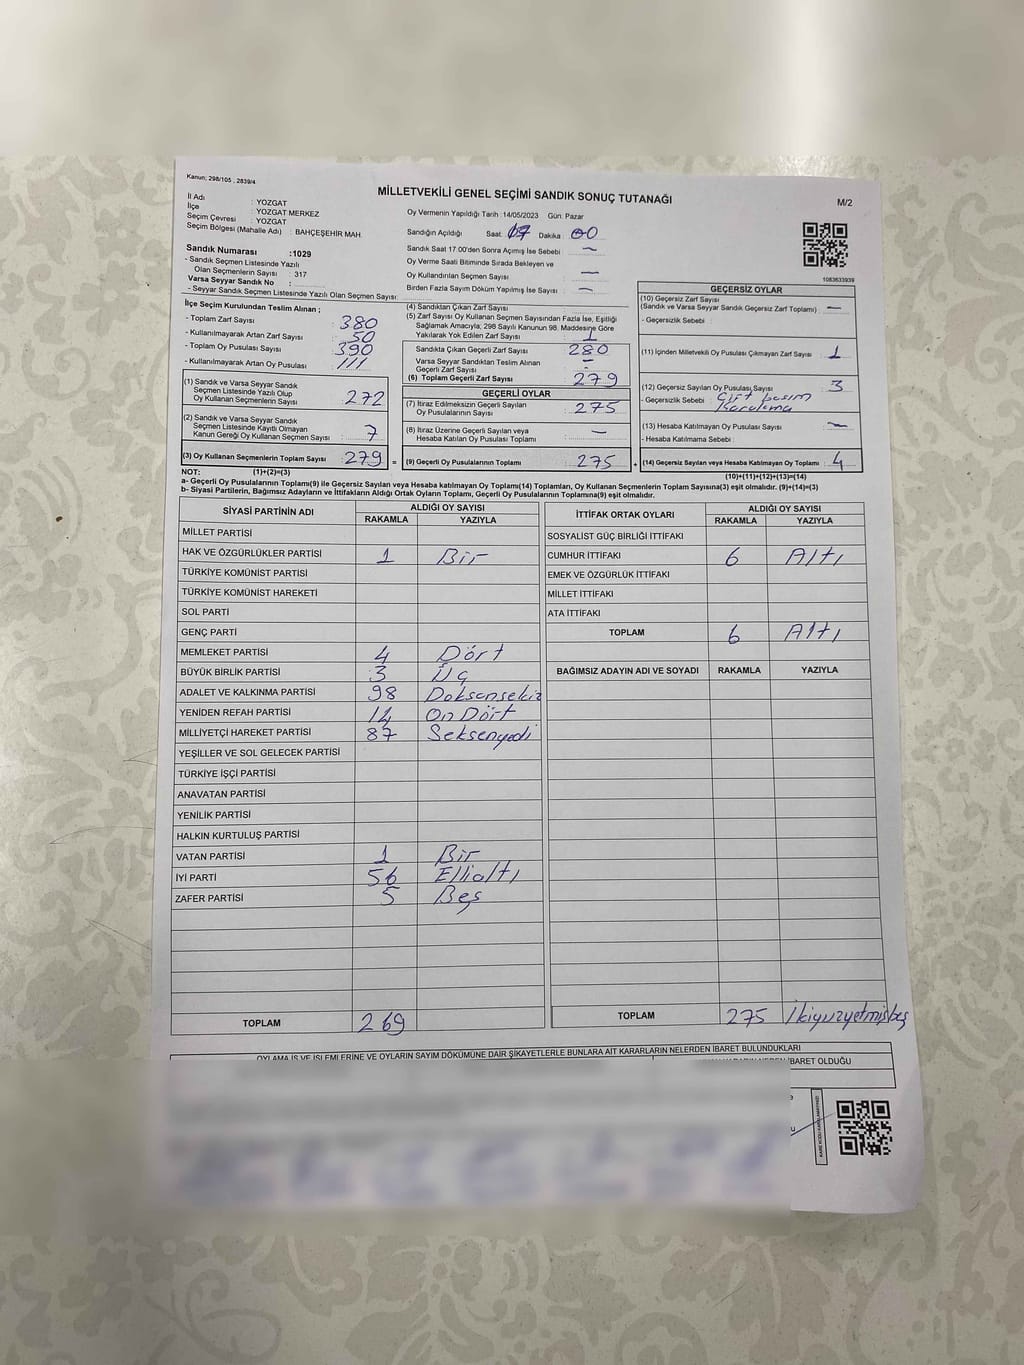 Kanun; 298/105 , 2839/4
MİLLETVEKİLİ GENEL SEÇİMİ SANDIK SONUÇ TUTANAĞI
M/2
İl Adı : YOZGAT
İlçe : YOZGAT MERKEZ
Seçim Çevresi : YOZGAT
Seçim Bölgesi (Mahalle Adı) : BAHÇEŞEHİR MAH.
Oy Vermenin Yapıldığı Tarih :14/05/2023 Gün: Pazar
Sandığın Açıldığı Saat: 17 Dakika: 00
Sandık Saat 17:00'den Sonra Açımış İse Sebebi : —
Oy Verme Saati Bitiminde Sırada Bekleyen ve
Oy Kullandırılan Seçmen Sayısı : —
Birden Fazla Sayım Döküm Yapılmış İse Sayısı : —
Sandık Numarası :1029
- Sandık Seçmen Listesinde Yazılı
Olan Seçmenlerin Sayısı : 317
Varsa Seyyar Sandık No :
- Seyyar Sandık Seçmen Listesinde Yazılı Olan Seçmen Sayısı:
1083633939
İlçe Seçim Kurulundan Teslim Alınan ;
- Toplam Zarf Sayısı : 380
- Kullanılmayarak Artan Zarf Sayısı : 50
- Toplam Oy Pusulası Sayısı : 390
- Kullanılmayarak Artan Oy Pusulası : 111
(1) Sandık ve Varsa Seyyar Sandık
Seçmen Listesinde Yazılı Olup
Oy Kullanan Seçmenlerin Sayısı : 272
(2) Sandık ve Varsa Seyyar Sandık
Seçmen Listesinde Kayıtlı Olmayan
Kanun Gereği Oy Kullanan Seçmen Sayısı : 7
(3) Oy Kullanan Seçmenlerin Toplam Sayısı : 279 =
(4) Sandıktan Çıkan Zarf Sayısı :
(5) Zarf Sayısı Oy Kullanan Seçmen Sayısından Fazla İse, Eşitliği
Sağlamak Amacıyla; 298 Sayılı Kanunun 98. Maddesine Göre
Yakılarak Yok Edilen Zarf Sayısı : 1
Sandıkta Çıkan Geçerli Zarf Sayısı : 280
Varsa Seyyar Sandıktan Teslim Alınan
Geçerli Zarf Sayısı : —
(6) Toplam Geçerli Zarf Sayısı : 279
GEÇERLİ OYLAR
(7) İtiraz Edilmeksizin Geçerli Sayılan
Oy Pusulasının Sayısı : 275
(8) İtiraz Üzerine Geçerli Sayılan veya
Hesaba Katılan Oy Pusulası Toplamı : —
(9) Geçerli Oy Pusulalarının Toplamı : 275 +
GEÇERSİZ OYLAR
(10) Geçersiz Zarf Sayısı
(Sandık ve Varsa Seyyar Sandık Geçersiz Zarf Toplamı) : —
- Geçersizlik Sebebi :
(11) İçinden Milletvekili Oy Pusulası Çıkmayan Zarf Sayısı : 1
(12) Geçersiz Sayılan Oy Pusulası Sayısı : 3
- Geçersizlik Sebebi : Çift basım
Karalama
(13) Hesaba Katılmayan Oy Pusulası Sayısı : —
- Hesaba Katılmama Sebebi :
(14) Geçersiz Sayılan veya Hesaba Katılmayan Oy Toplamı : 4
NOT: (1)+(2)=(3) (10)+(11)+(12)+(13)=(14)
a- Geçerli Oy Pusulalarının Toplamı(9) ile Geçersiz Sayılan veya Hesaba katılmayan Oy Toplamı(14) Toplamları, Oy Kullanan Seçmenlerin Toplam Sayısına(3) eşit olmalıdır. (9)+(14)=(3)
b- Siyasi Partilerin, Bağımsız Adayların ve İttifakların Aldığı Ortak Oyların Toplamı, Geçerli Oy Pusulalarının Toplamına(9) eşit olmalıdır.
SİYASİ PARTİNİN ADI ALDIĞI OY SAYISI
RAKAMLA YAZIYLA
MİLLET PARTİSİ
HAK VE ÖZGÜRLÜKLER PARTİSİ 1 Bir
TÜRKİYE KOMÜNİST PARTİSİ
TÜRKİYE KOMÜNİST HAREKETİ
SOL PARTİ
GENÇ PARTİ
MEMLEKET PARTİSİ 4 Dört
BÜYÜK BİRLİK PARTİSİ 3 Üç
ADALET VE KALKINMA PARTİSİ 98 Doksansekiz
YENİDEN REFAH PARTİSİ 14 On Dört
MİLLİYETÇİ HAREKET PARTİSİ 87 Seksenyedi
YEŞİLLER VE SOL GELECEK PARTİSİ
TÜRKİYE İŞÇİ PARTİSİ
ANAVATAN PARTİSİ
YENİLİK PARTİSİ
HALKIN KURTULUŞ PARTİSİ
VATAN PARTİSİ 1 Bir
İYİ PARTİ 56 Ellialtı
ZAFER PARTİSİ 5 Beş
TOPLAM 269
İTTİFAK ORTAK OYLARI ALDIĞI OY SAYISI
RAKAMLA YAZIYLA
SOSYALİST GÜÇ BİRLİĞİ İTTİFAKI
CUMHUR İTTİFAKI 6 Altı
EMEK VE ÖZGÜRLÜK İTTİFAKI
MİLLET İTTİFAKI
ATA İTTİFAKI
TOPLAM 6 Altı
BAĞIMSIZ ADAYIN ADI VE SOYADI RAKAMLA YAZIYLA
TOPLAM 275 İkiyüzyetmişbeş
OYLAMA İŞ VE İŞLEMLERİNE VE OYLARIN SAYIM DÖKÜMÜNE DAİR ŞİKAYETLERLE BUNLARA AİT KARARLARIN NELERDEN İBARET BULUNDUKLARI
İBARET OLDUĞU